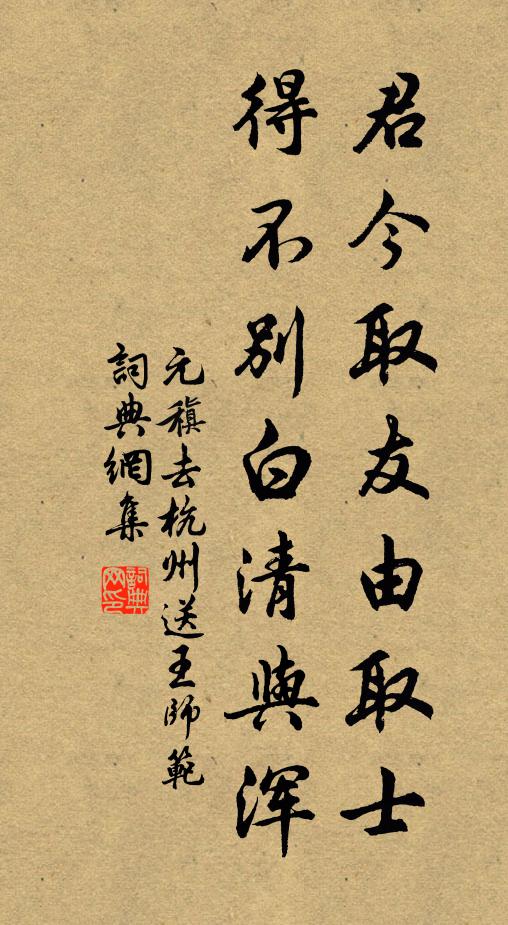 君今取友由取士
得不別白清與浑
元稹去杭州送王師範
詞典網集
詞典網印